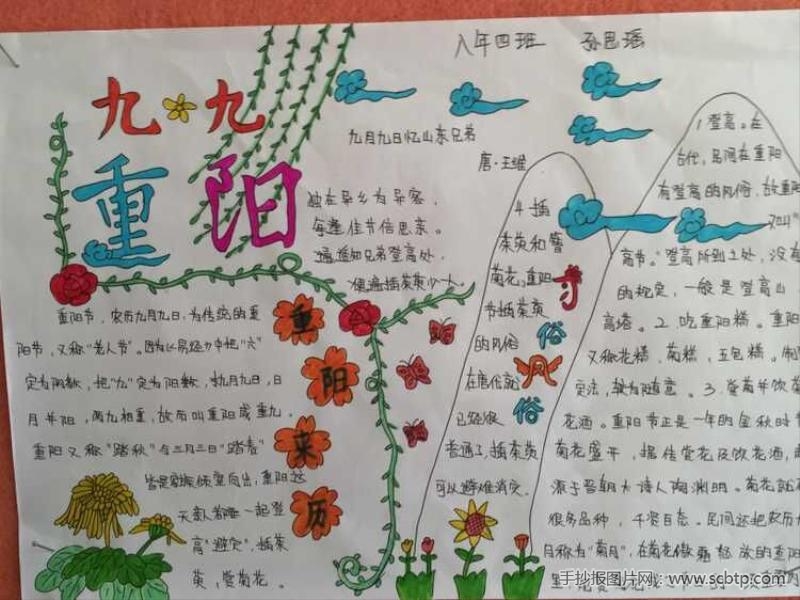 八年四班 孙思瑶
九九
重阳
九月九日忆山东兄弟
唐·王维
独在异乡为异客,
每逢佳节倍思亲。
遥知兄弟登高处,
遍插茱萸少一人。
重阳节,农历九月九日,为传统的重
阳节,又称"老人节"。因为《易经》中把"六"
定为阴数,把"九"定为阳数,九月九日,日
月并阳,两九相重,故而叫重阳或重九,
重阳又称"踏秋"与三月三日"踏春"
皆是家族倾室而出,重阳这
天家人都要一起登
高"避灾",插茱
萸,赏菊花。
重阳来历
4.插
茱萸和簪
菊花。重阳
节插茱萸
的风俗
在唐代就
已经很
普遍了,插茱萸
可以避难消灾
习俗
风俗
1.登高。在
古代,民间在重阳
有登高的风俗,故重阳
高节。"登高所到之处,没有
的规定,一般是登高山,
高塔。2.吃重阳糕。重阳
又称花糕,菊糕,五色糕。制
定法,较为随意。3.赏菊并饮菊
花酒。重阳节正是一年的金秋时节
菊花盛开,据传赏花及饮花酒,
源于晋朝大诗人陶渊明。菊花
很多品种,千姿百态。民间还把农历
月称为"菊月",在菊花傲霜怒放的重阳
里,
手抄报图片网 www.scbtp.com